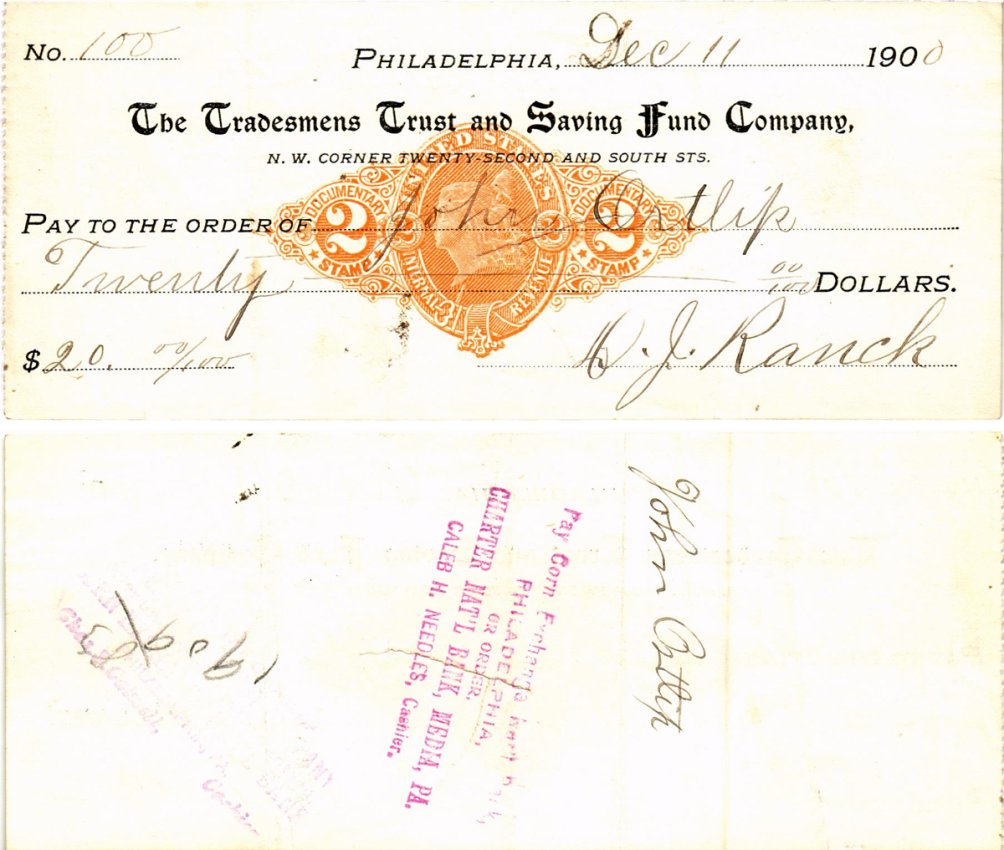 No. 100
PHILADELPHIA, Dec 11 1900
The Tradesmens Trust and Saving Fund Company,
N. W. CORNER TWENTY-SECOND AND SOUTH STS.
UNITED STATES
INTERNAL REVENUE
DOCUMENTARY
2
STAMP
2
2
DOCUMENTARY
2
STAMP
PAY TO THE ORDER OF John Ortlip
Twenty 00/100 DOLLARS.
$ 20. 00/100
J. Ranck
John Ortlip
Pay Corn Exchange Nat'l Bank,
PHILADELPHIA,
OR ORDER.
CHARTER NAT'L BANK, MEDIA, PA.
CALEB H. NEEDLES, Cashier.